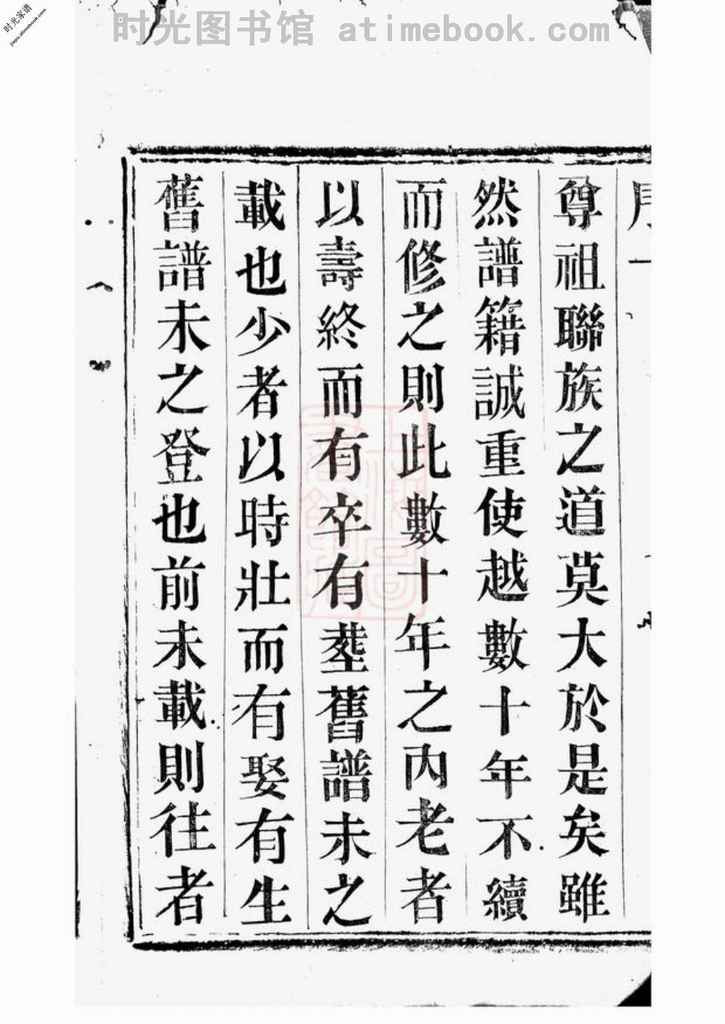 时光图书馆 atimebook.com
时光家谱
尊祖聯族之道莫大於是矣雖
然譜籍誠重使越數十年不續
而修之則此數十年之內老者
以壽終而有卒有塟舊譜未之
載也少者以時壯而有娶有生
舊譜未之登也前未載則往者